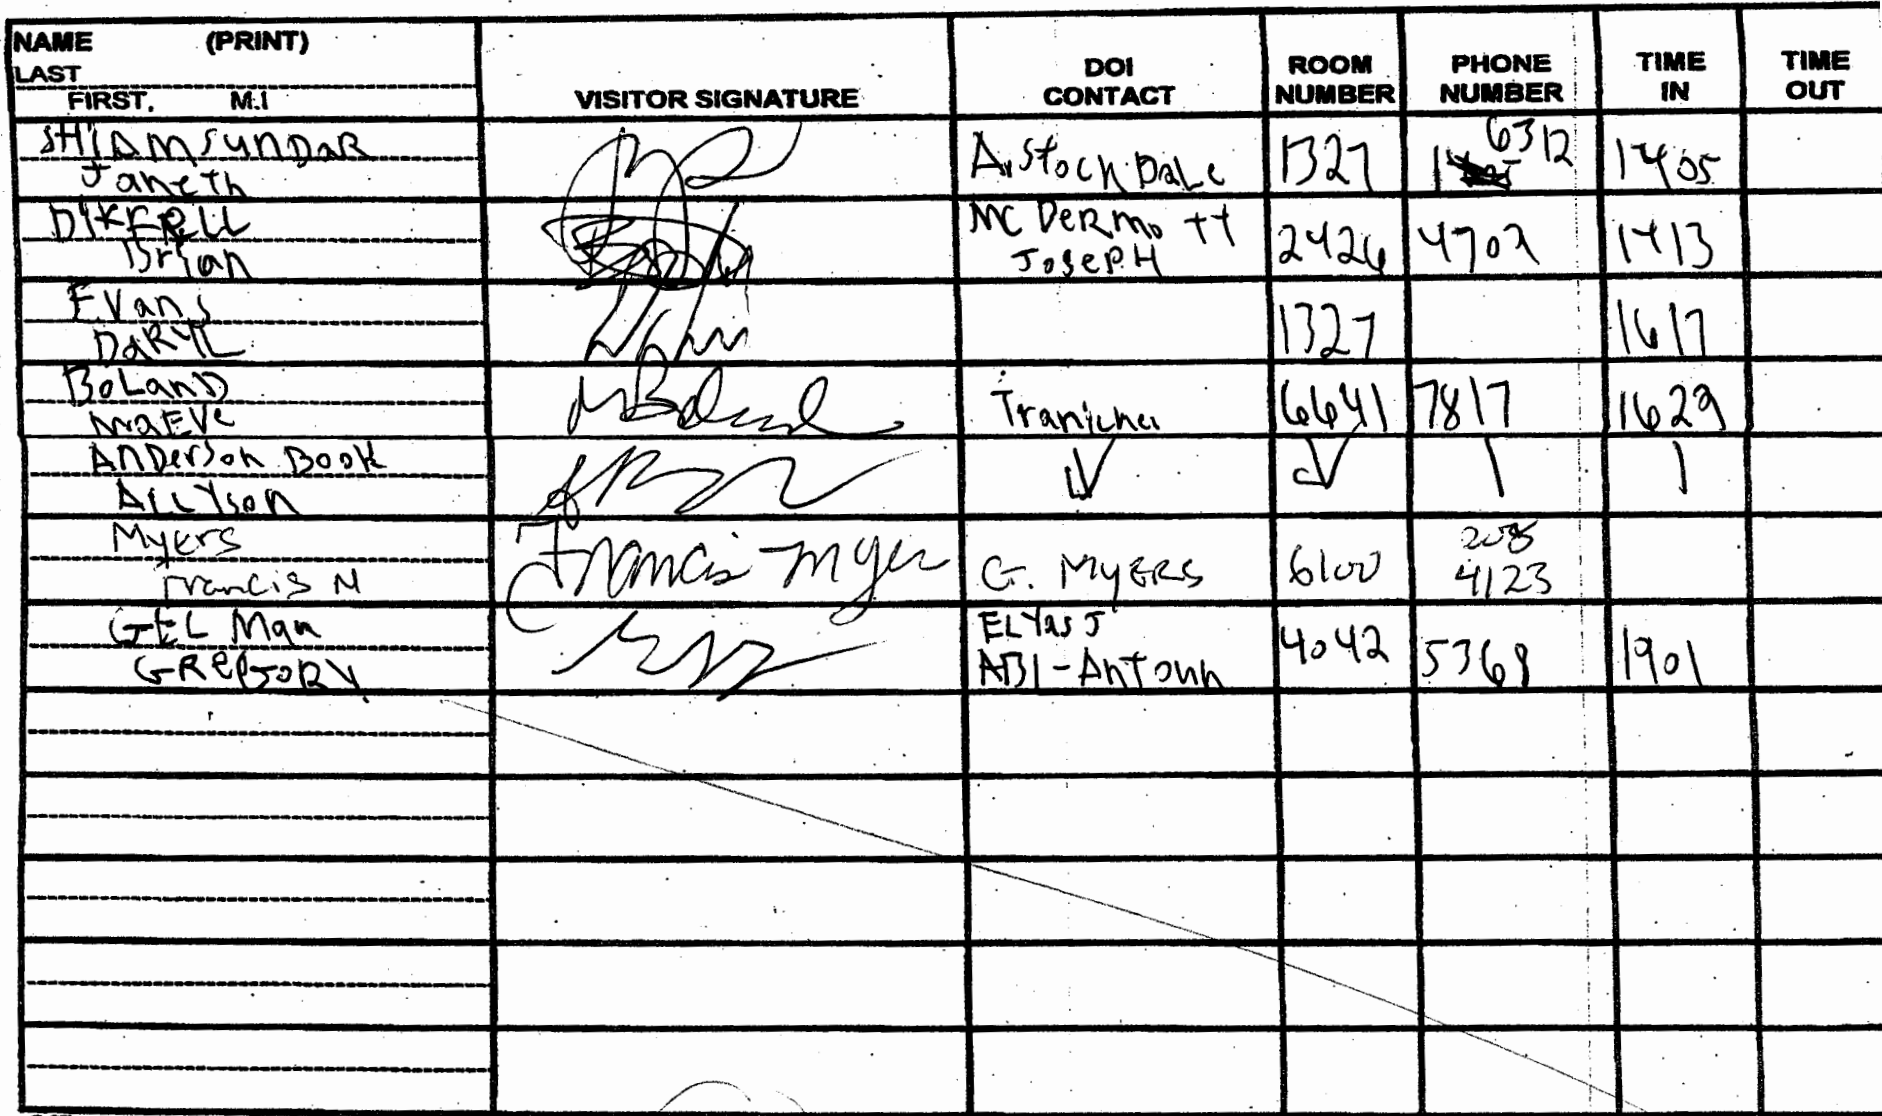 NAME (PRINT)
LAST
FIRST. M.I
VISITOR SIGNATURE
DOI
CONTACT
ROOM
NUMBER
PHONE
NUMBER
TIME
IN
TIME
OUT
SHIAMSUNDAR
Janeth
A. StockDaLe
1327
6312
1405
DIKFRELL
Brian
MC DeRmott
JosePH
2426
4702
1413
Evans
DaRYL
1327
1617
BoLanD
MaEVe
6641
7817
1629
AnDerson Book
ALLYson
Myers
Francis M
Francis Myer
G. MYERS
6100
208
4123
GEL Man
GREGORY
ELYas J
ABI-Antoun
4042
5369
1901